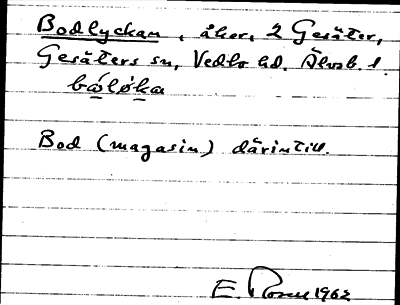 Bodlyckan, åker, 2 Gesäter,
Gesäters sn, Vedbo hd. Älvsb. l.
bóløka
Bod (magasin) därintill.
E. Rosell 1962